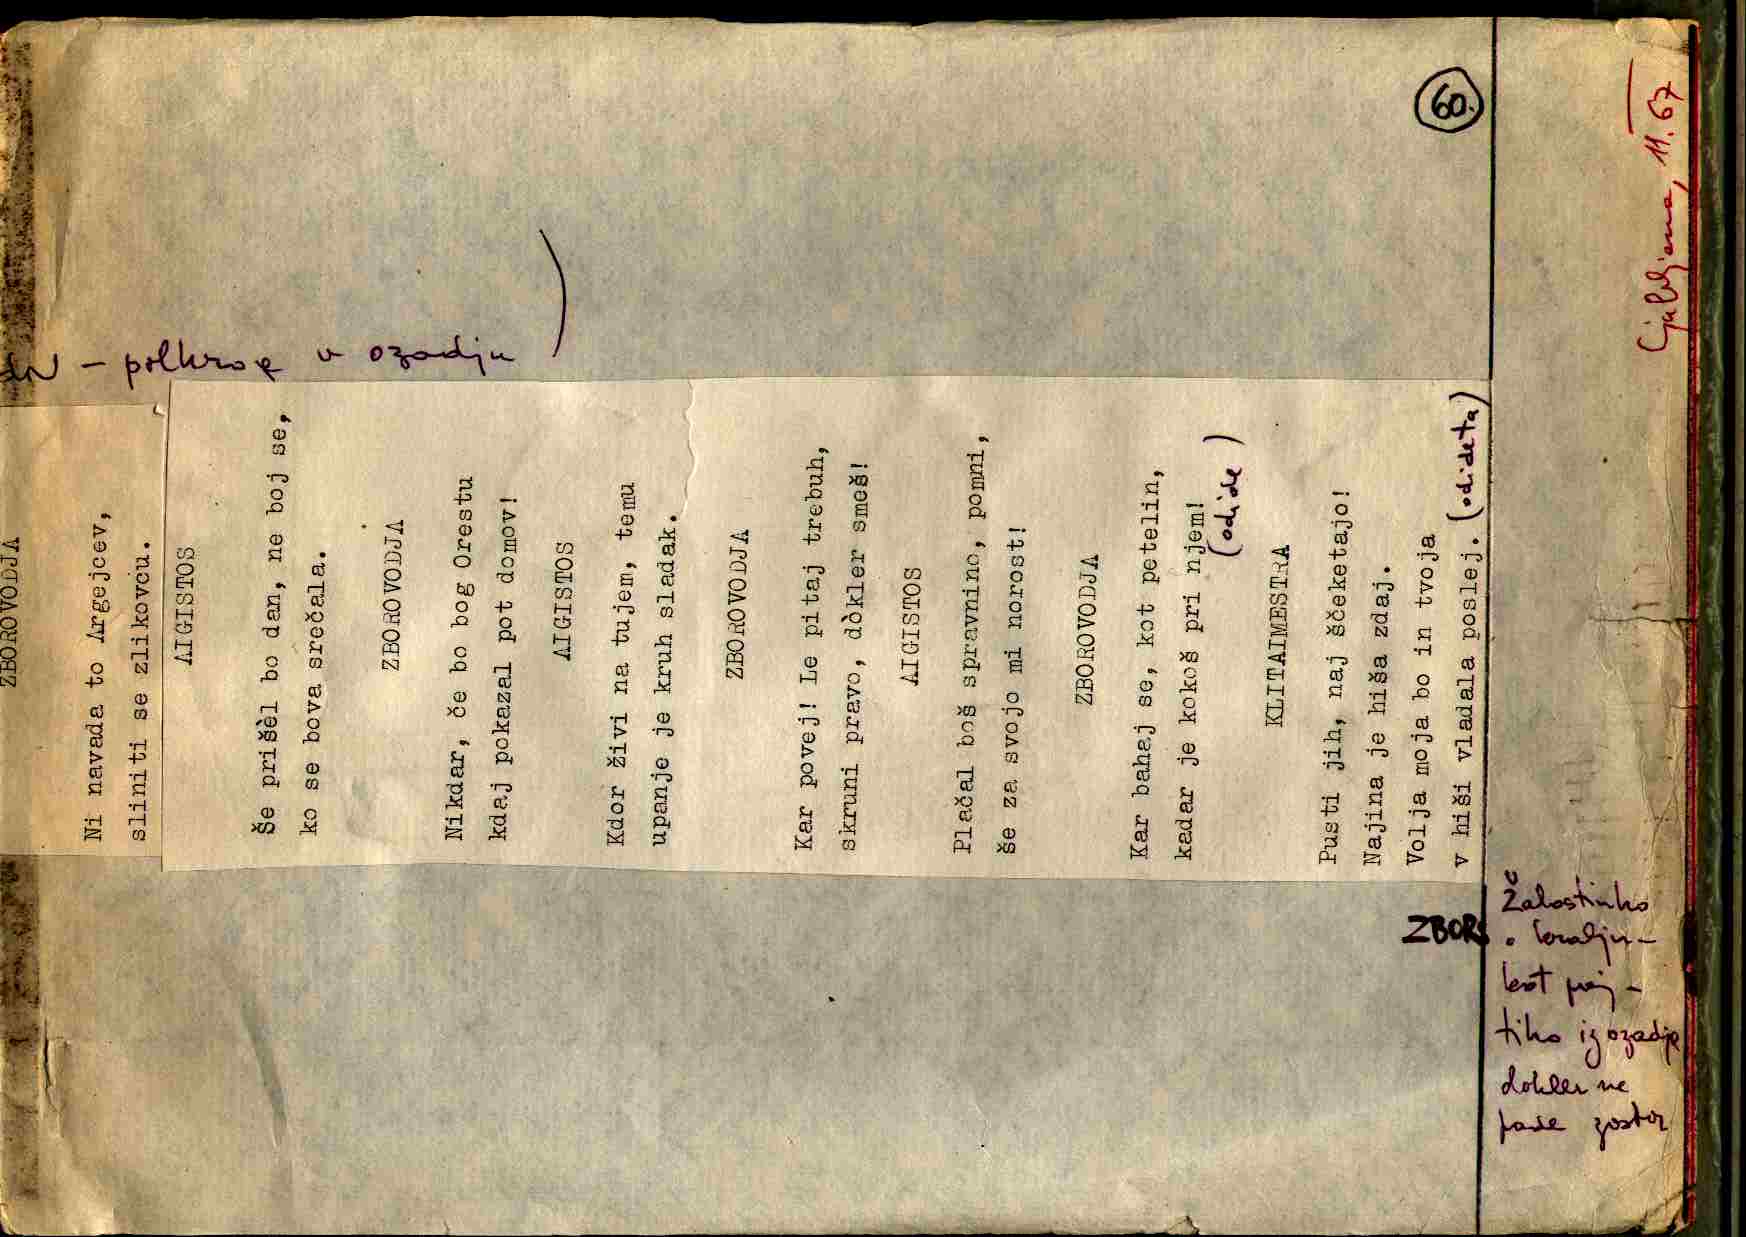 60.
– polkrog v ozadju )
ZBOROVODJA
Ni navada to Argejcev,
sliniti se zlikovcu.
AIGISTOS
Še prišèl bo dan, ne boj se,
ko se bova srečala.
ZBOROVODJA
Nikdar, če bo bog Orestu
kdaj pokazal pot domov!
AIGISTOS
Kdor živi na tujem, temu
upanje je kruh sladak.
ZBOROVODJA
Kar povej! Le pitaj trebuh,
skruni pravo, dòkler smeš!
AIGISTOS
Plačal boš spravnino, pomni,
še za svojo mi norost!
ZBOROVODJA
Kar bahaj se, kot petelin,
kadar je kokoš pri njem!
(odide)
KLITAIMESTRA
Pusti jih, naj ščeketajo!
Najina je hiša zdaj.
Volja moja bo in tvoja
v hiši vladala poslej. (odideta)
ZBOR:
Žalostinko
o kralju –
kot prej –
tiho iz ozadja
dokler ne
pade zastor
Ljubljana, 11.67